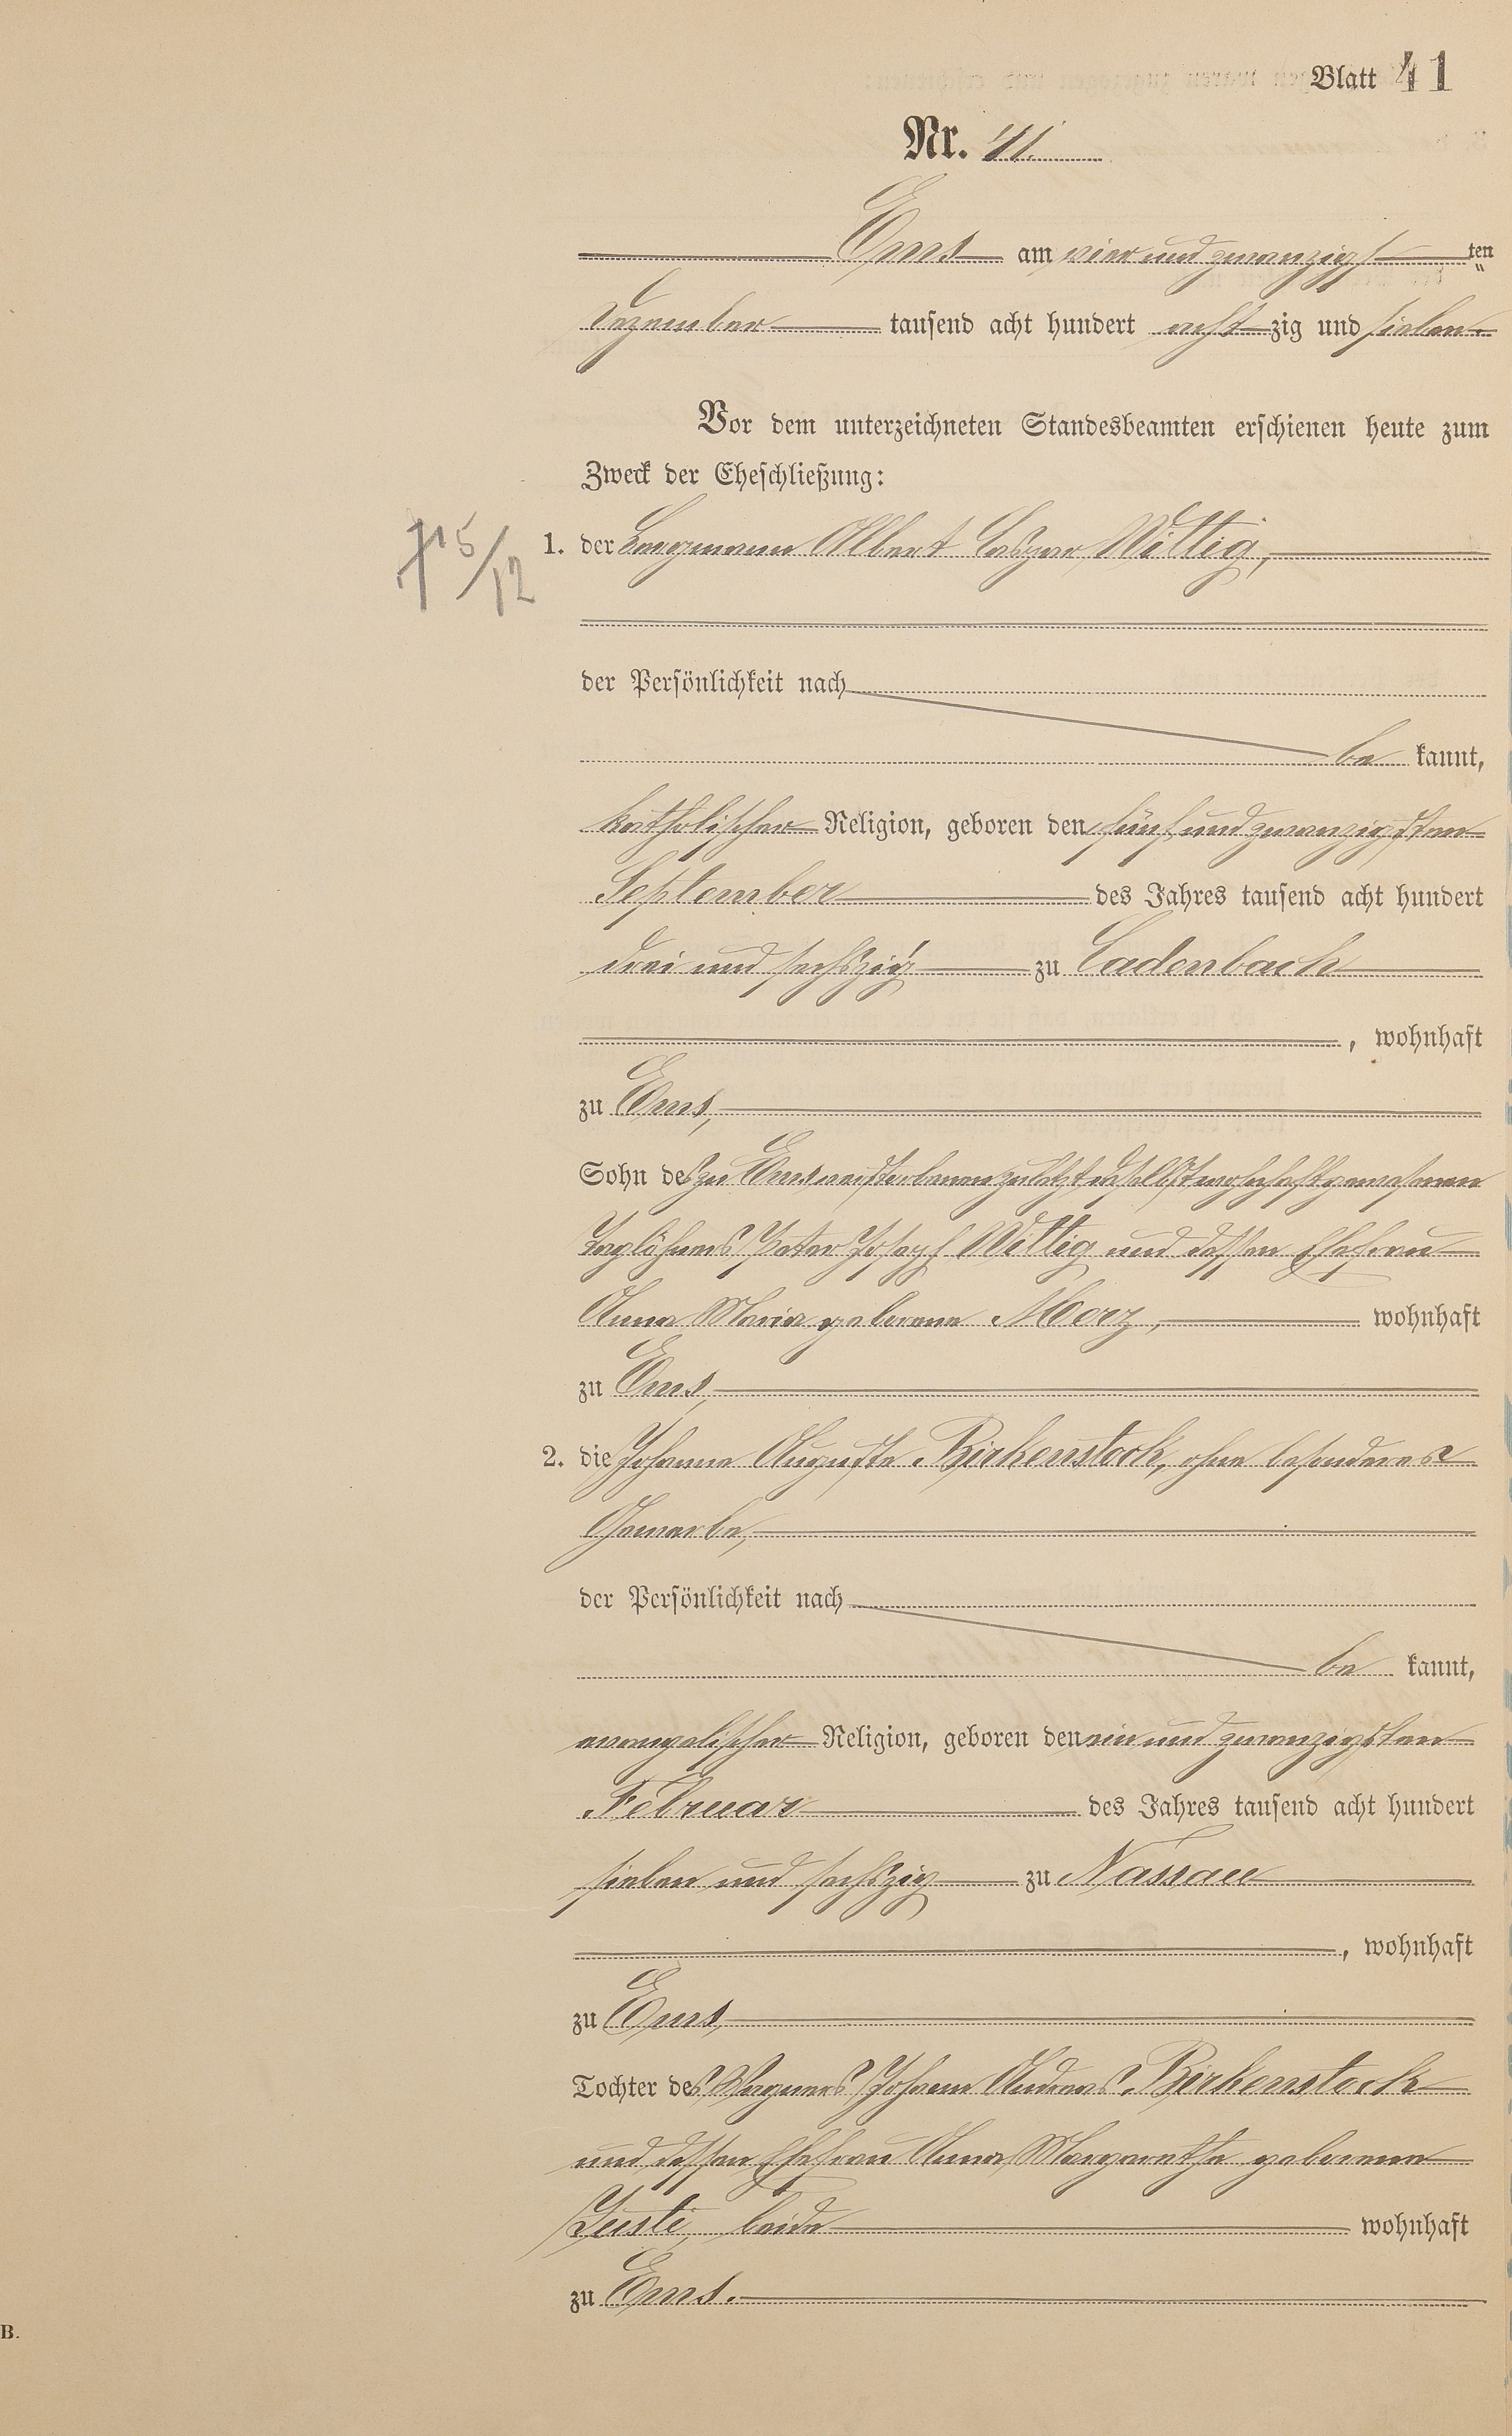 Blatt 41
Nr. 41.
Ems am vier und zwanzigsten
Dezember tausend acht hundert achtzig und sieben.
Vor dem unterzeichneten Standesbeamten erschienen heute zum
Zweck der Eheschließung:
1. der Bergmann Albert Caspar Wittig,
der Persönlichkeit nach
be kannt,
katholischer Religion, geboren den fünf und zwanzigsten
September des Jahres tausend acht hundert
drei und sechszig zu Cadenbach
, wohnhaft
zu Ems,
Sohn des zu Ems verstorbenen zuletzt daselbst wohnhaft gewesenen
Taglöhners Peter Joseph Wittig und dessen Ehefrau
Anna Maria geborene Morz, wohnhaft
zu Ems,
2. die Johanna Auguste Birkenstock, ohne besonderes
Gewerbe,
der Persönlichkeit nach
be kannt,
evangelischer Religion, geboren den ein und zwanzigsten
Februar des Jahres tausend acht hundert
sieben und sechszig zu Nassau
, wohnhaft
zu Ems,
Tochter des Wagners Johann Andreas Birkenstock
und dessen Ehefrau Anna Margarethe geborene
Justi, beide wohnhaft
zu Ems.
B.